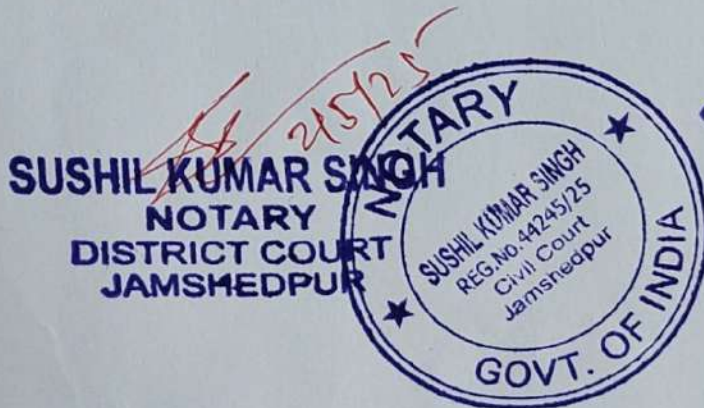 2/5/25
SUSHIL KUMAR SINGH
NOTARY
DISTRICT COURT
JAMSHEDPUR
NOTARY
SUSHIL KUMAR SINGH
REG.No.44245/25
Civil Court
Jamshedpur
GOVT. OF INDIA